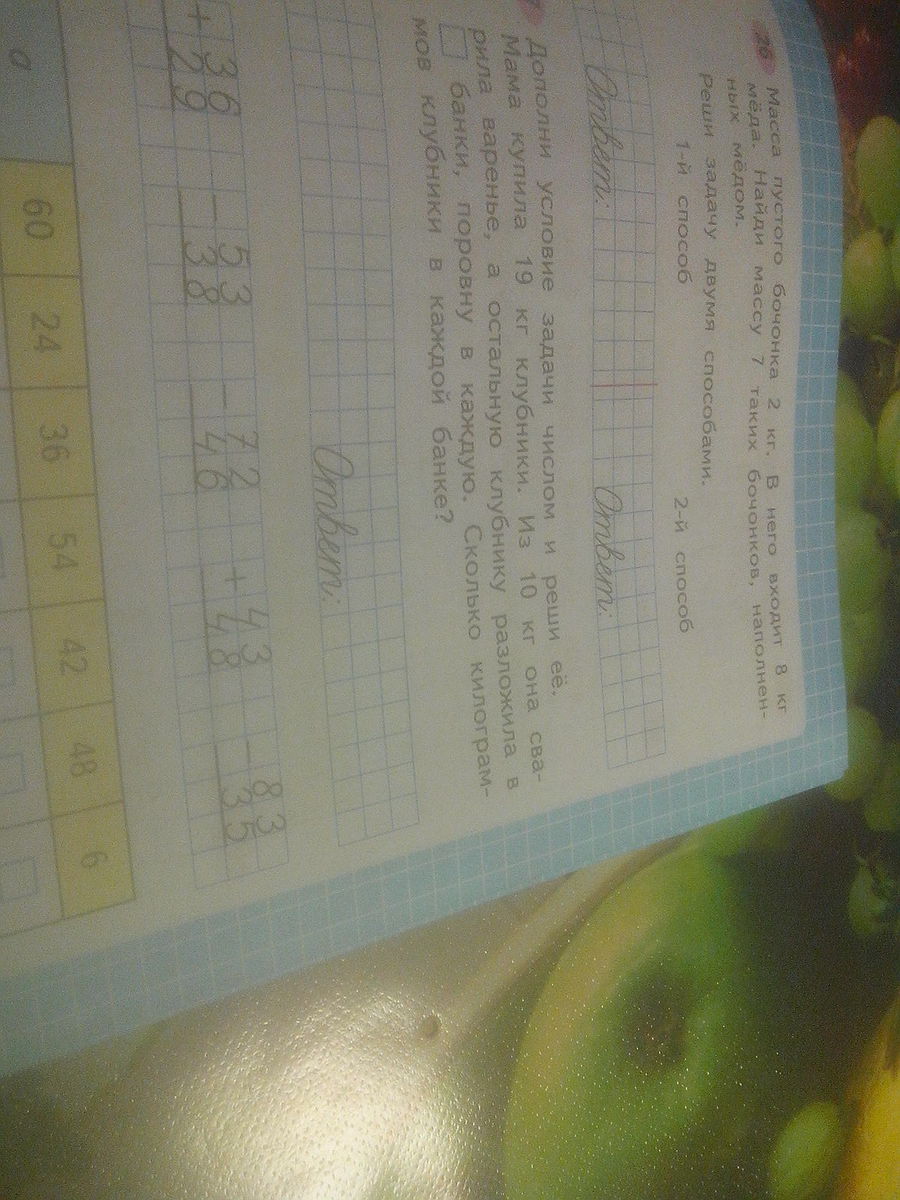 26 Масса пустого бочонка 2 кг. В него входит 8 кг
мёда. Найди массу 7 таких бочонков, наполнен-
ных мёдом.
Реши задачу двумя способами.
1-й способ 2-й способ
Ответ: Ответ:
Дополни условие задачи числом и реши её.
Мама купила 19 кг клубники. Из 10 кг она сва-
рила варенье, а остальную клубнику разложила в
банки, поровну в каждую. Сколько килограм-
мов клубники в каждой банке?
Ответ:
+ 36 − 53 − 72 + 43 − 83
29 38 46 48 35
а 60 24 36 54 42 48 6